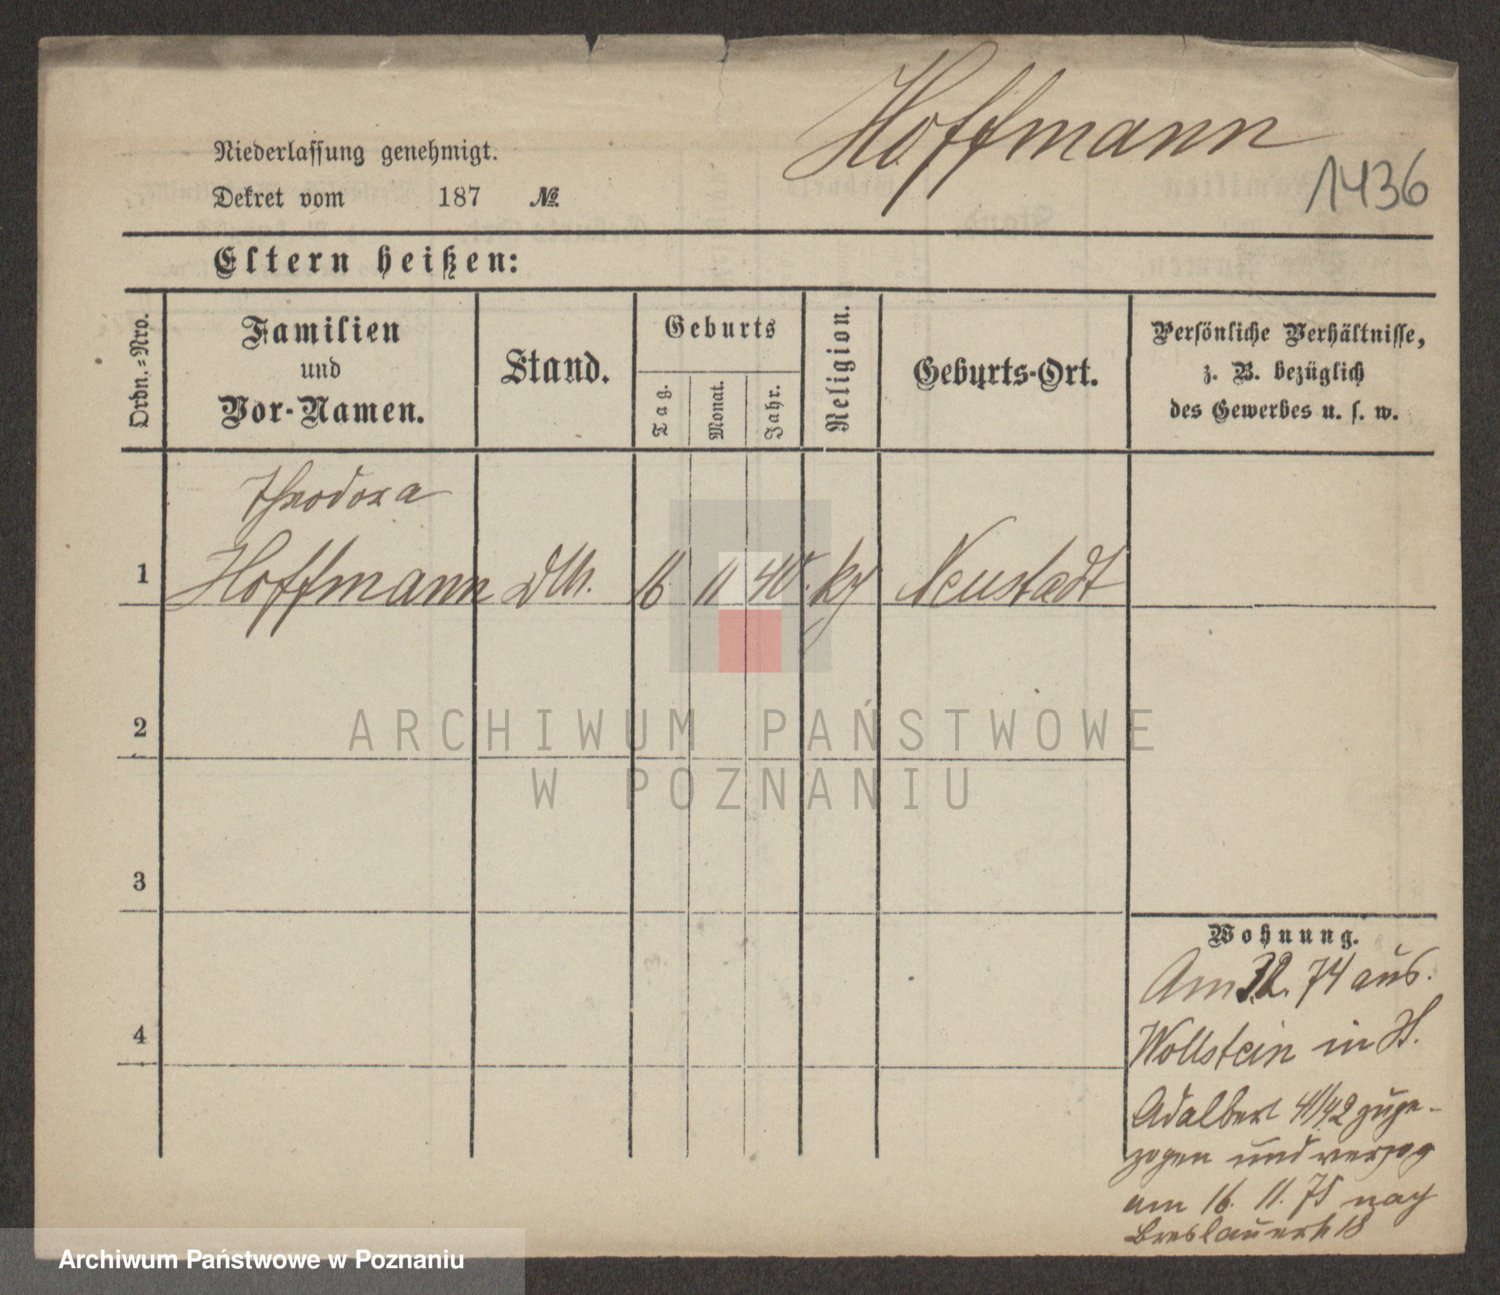 Hoffmann
1436
Niederlassung genehmigt.
Dekret vom 187 №
Eltern heißen:
Ordn.=Nro.
Familien
und
Vor-Namen.
Stand.
Geburts
Tag.
Monat.
Jahr.
Religion.
Geburts-Ort.
Persönliche Verhältnisse,
z. B. bezüglich
des Gewerbes u. s. w.
Theodora
1 Hoffmann 16 11 40. Neustadt
2
3
4
Wohnung.
Am 74 aus.
Wollstein in St.
Adalbert 41/42 zuge-
zogen und verzog
am 16. 11. 75 nach
Breslauerstr 18
ARCHIWUM PAŃSTWOWE
W POZNANIU
Archiwum Państwowe w Poznaniu